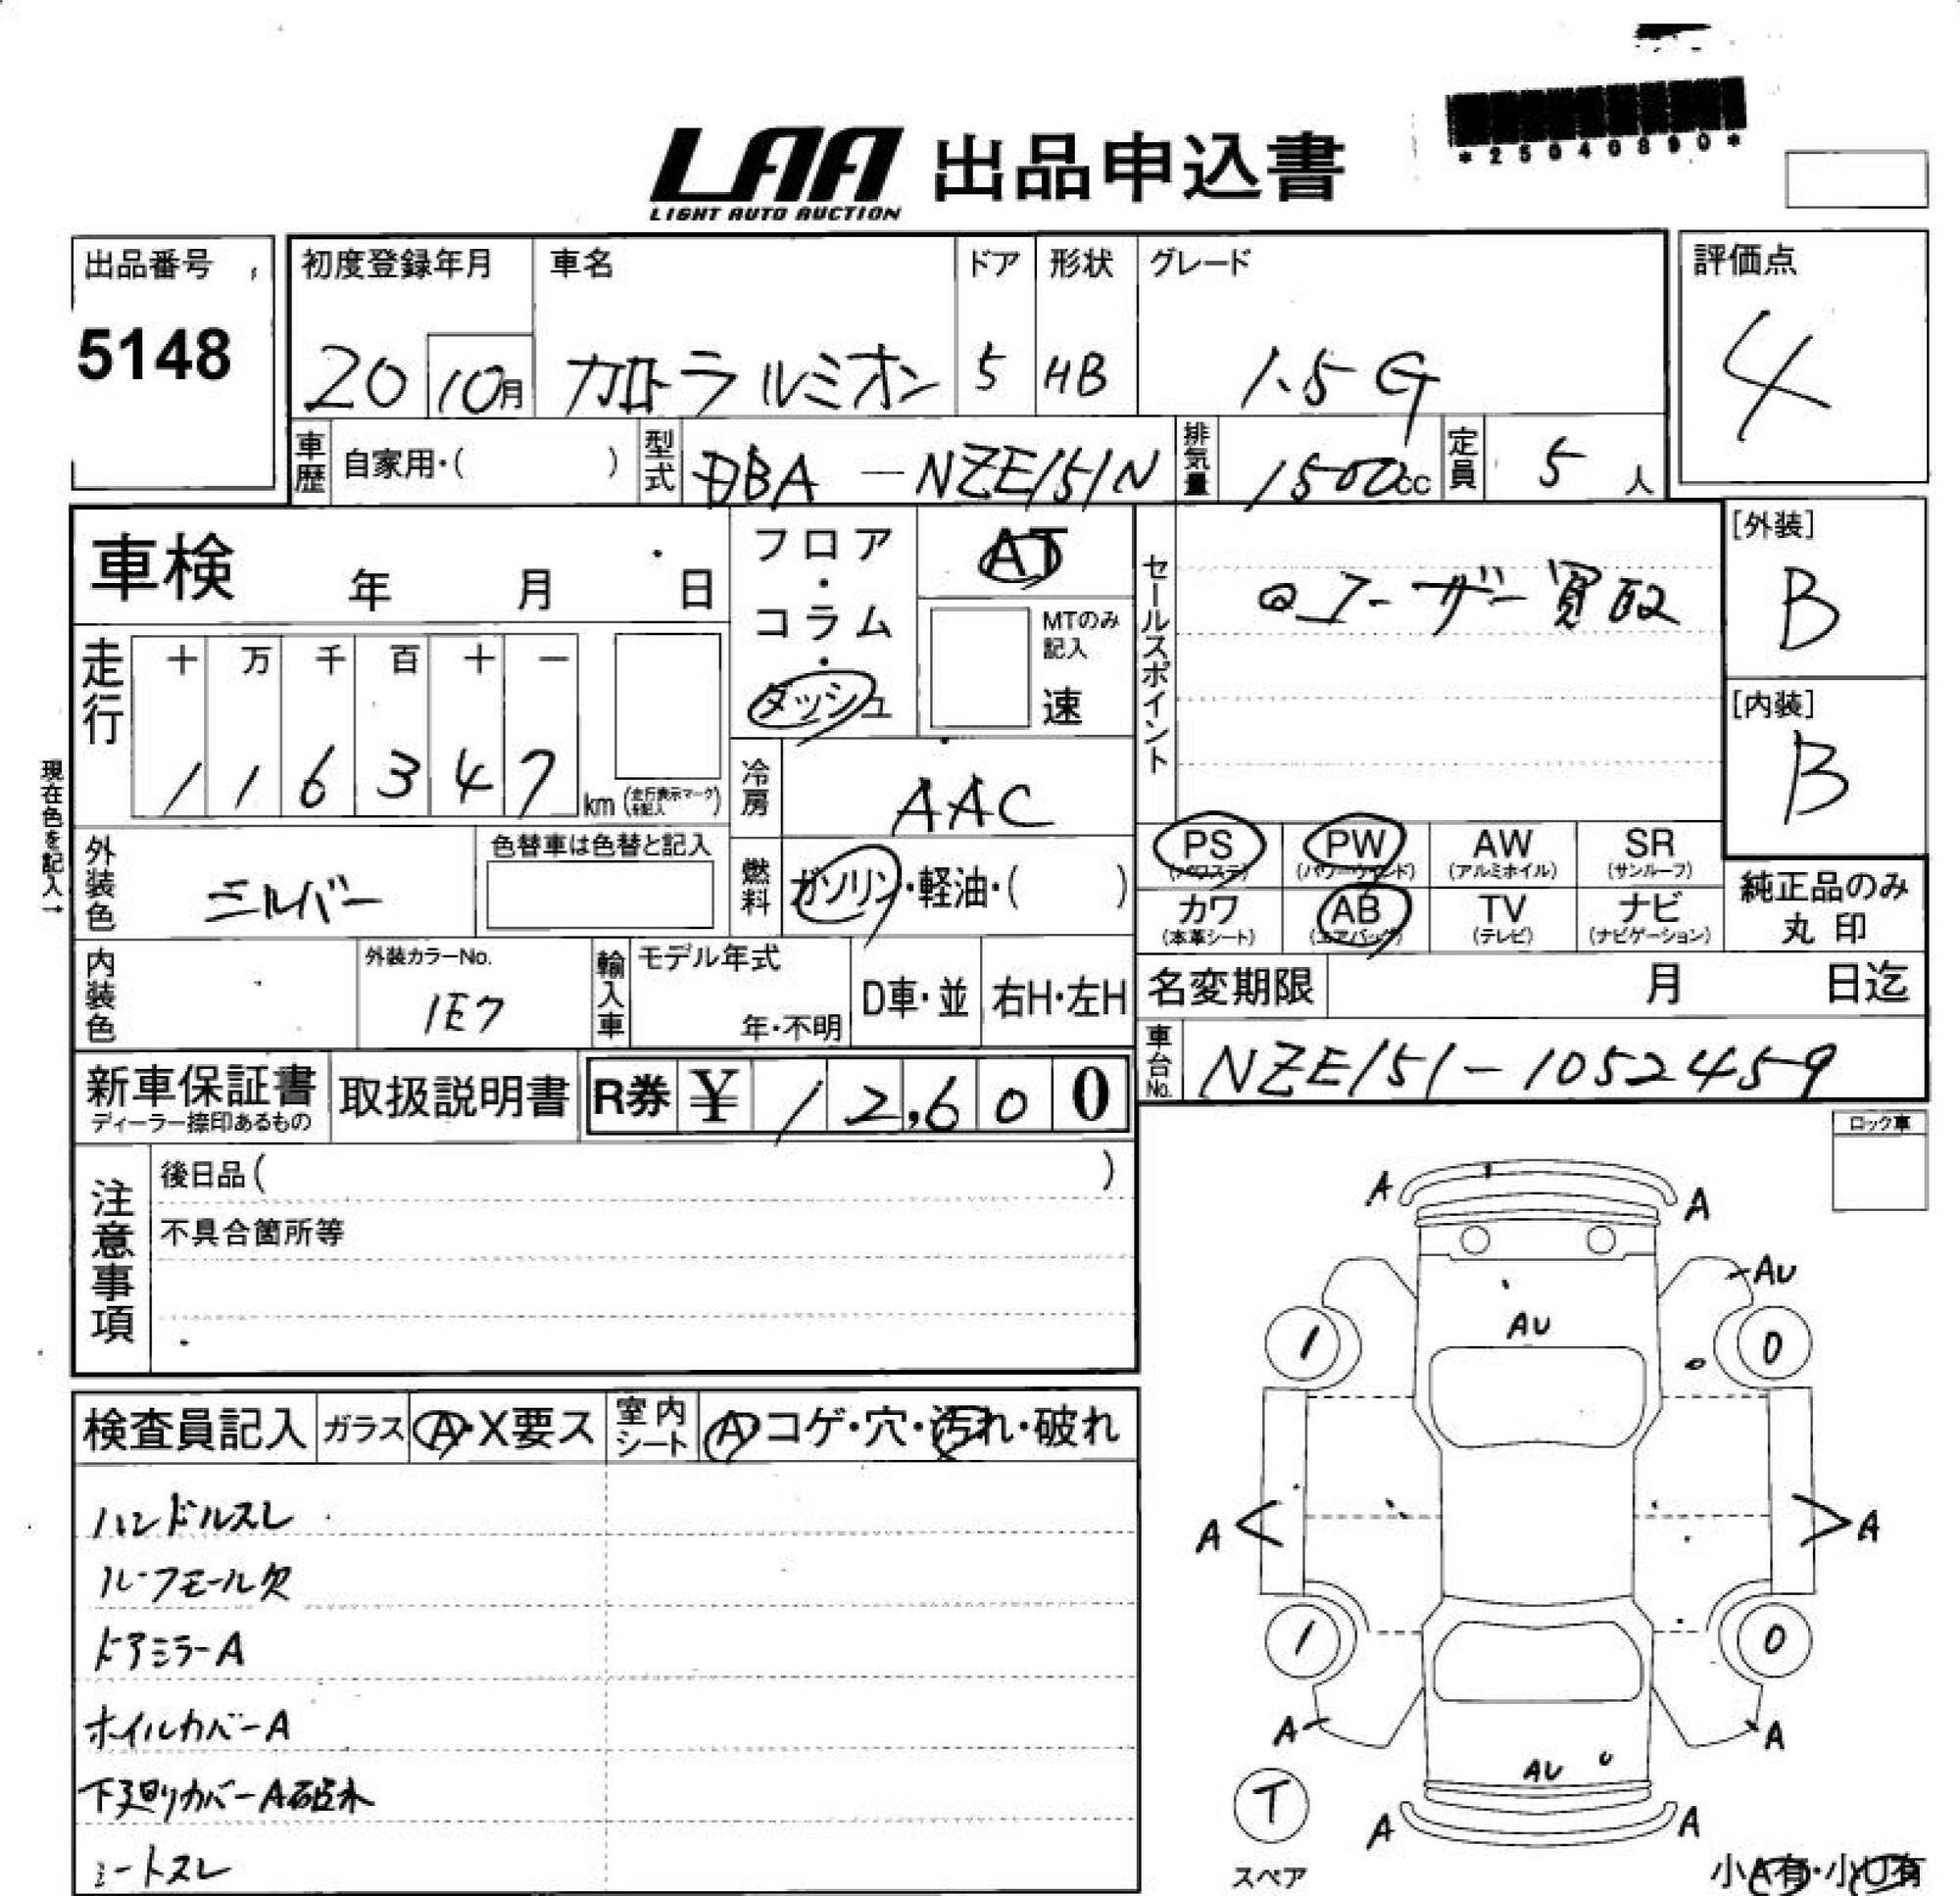 *25040890*
LAA 出品申込書
LIGHT AUTO AUCTION
出品番号
5148
初度登録年月
20 10月
車名
カローラ ルミオン
ドア
5
形状
HB
グレード
1.5G
評価点
4
車歴 自家用・( )
型式 DBA-NZE151N
排気量 1500cc
定員 5人
車検 年 月 日
フロア・コラム・ダッシュ
AT
MTのみ記入
速
セールスポイント
ユーザー買取
[外装]
B
[内装]
B
走行
十 万 千 百 十 一
1 1 6 3 4 7 km (走行表示マークを記入)
現在色を記入→
冷房 AAC
外装色 シルバー
色替車は色替と記入
燃料 ガソリン・軽油・( )
PS (パワステ)
PW (パワーウインド)
AW (アルミホイル)
SR (サンルーフ)
カワ (本革シート)
AB (エアバッグ)
TV (テレビ)
ナビ (ナビゲーション)
純正品のみ丸印
内装色
外装カラーNo.
1E7
輸入車
モデル年式
年・不明
D車・並
右H・左H
名変期限 月 日迄
車台No. NZE151-1052459
新車保証書
ディーラー捺印あるもの
取扱説明書
R券 ¥ 12,600
注意事項
後日品( )
不具合箇所等
ロック車
検査員記入
ガラス A・X要ス
室内シート A・コゲ・穴・汚れ・破れ
ハンドルスレ
ルーフモール欠
ドアミラーA
ホイルカバーA
下廻りカバーA破れ
シートスレ
A A
AU
AU
1 0
A A
1 0
A A
AU U
T
スペア
A A
小A有・小U有